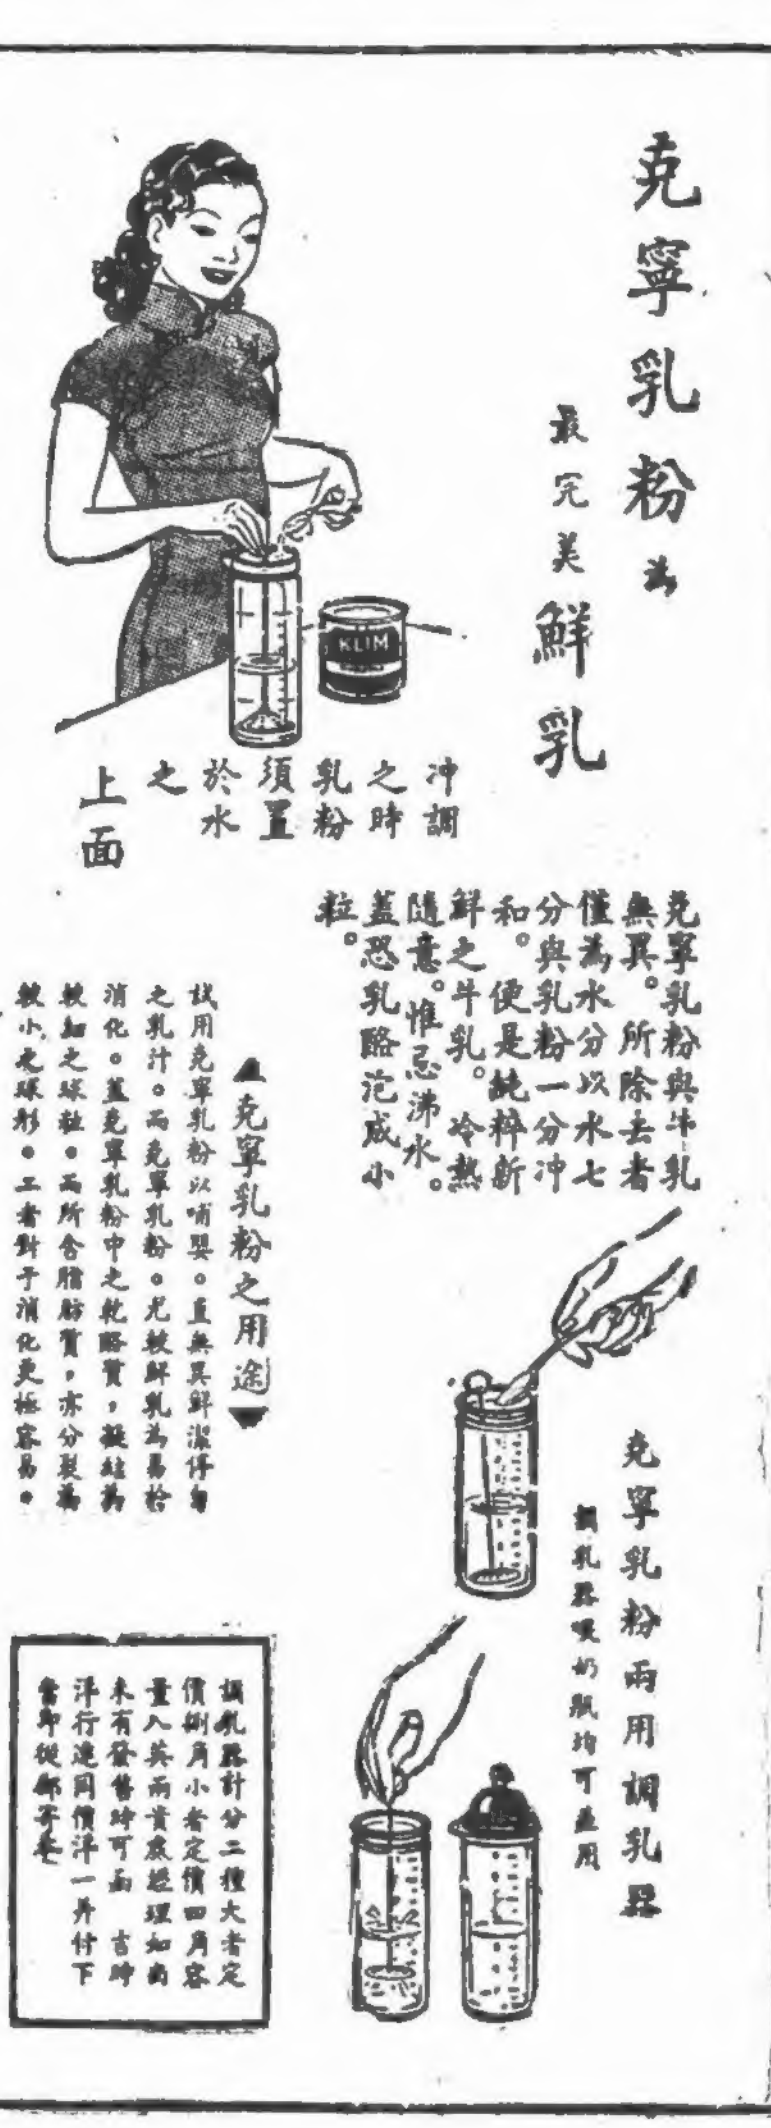 克寧乳粉為
最完美鮮乳
KLIM
冲調
之時
乳粉
須置
於水
之
上面
克寧乳粉與牛乳
無異。所除去者
僅為水分以水七
分與乳粉一分冲
和。便是純粹新
鮮之牛乳。冷熱
隨意。惟忌沸水。
蓋恐乳酪泡成小
粒。
▲克寧乳粉之用途▼
試用克寧乳粉以哺嬰。直無異鮮潔停勻
之乳汁。而克寧乳粉。尤較鮮乳為易於
消化。蓋克寧乳粉中之乾酪質，凝結為
較細之球粒。而所含脂肪質，亦分裂為
較小之球形。二者對于消化更極容易。
克寧乳粉兩用調乳器
調乳器喂奶瓶均可並用
調乳器計分二種大者定
價捌角小者定價四角容
量八英兩貴處經理如尚
未有發售時可函 吉時
洋行連同價洋一并付下
當即從郵寄奉